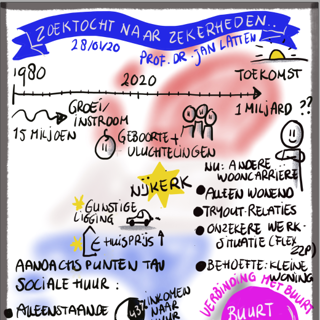 ZOEKTOCHT NAAR ZEKERHEDEN...
28/01/20
PROF. DR. JAN LATTEN
1980
2020
TOEKOMST
GROEI/
INSTROOM
1 MILJARD ??
15 MILJOEN
GEBOORTE +
VLUCHTELINGEN
NIJKERK
NU: ANDERE
WOONCARRIERE
ALLEEN WONEND
TRYOUT-RELATIES
ONZEKERE WERK-
SITUATIE (FLEX,
ZZP)
BEHOEFTE: KLEINE
WONING
GUNSTIGE
LIGGING
€ HUISPRIJS ↑
AANDACHSPUNTEN TAV
SOCIALE HUUR:
ALLEENSTAANDE
INKOMEN
NAAR
VERBINDING MET BUURT
BUURT